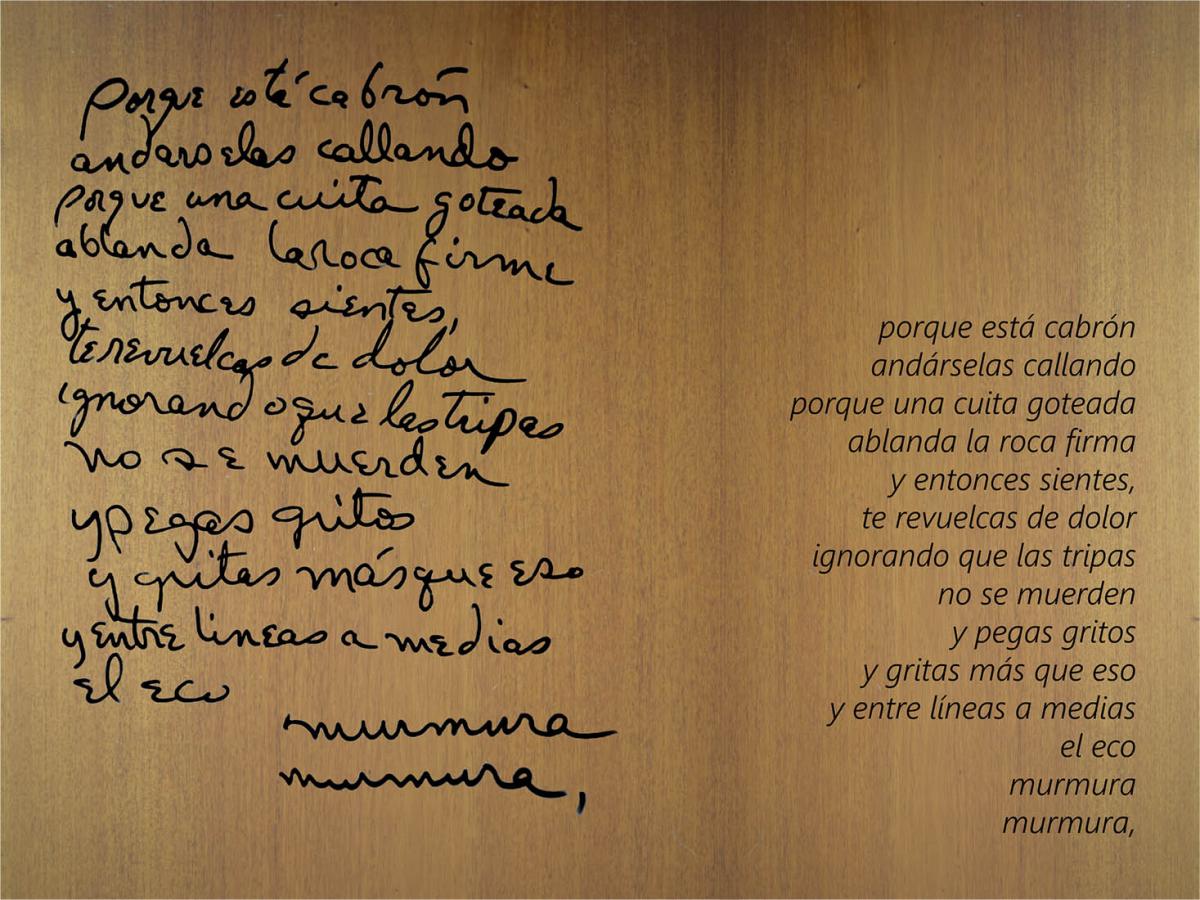 porque está cabrón
andarselas callando
porque una cuita goteada
ablanda la roca firme
y entonces sientes,
te revuelcas de dolor
ignorando que las tripas
no se muerden
y pegas gritos
y gritas más que eso
y entre lineas a medias
el eco
murmura
murmura,
porque está cabrón
andárselas callando
porque una cuita goteada
ablanda la roca firma
y entonces sientes,
te revuelcas de dolor
ignorando que las tripas
no se muerden
y pegas gritos
y gritas más que eso
y entre líneas a medias
el eco
murmura
murmura,